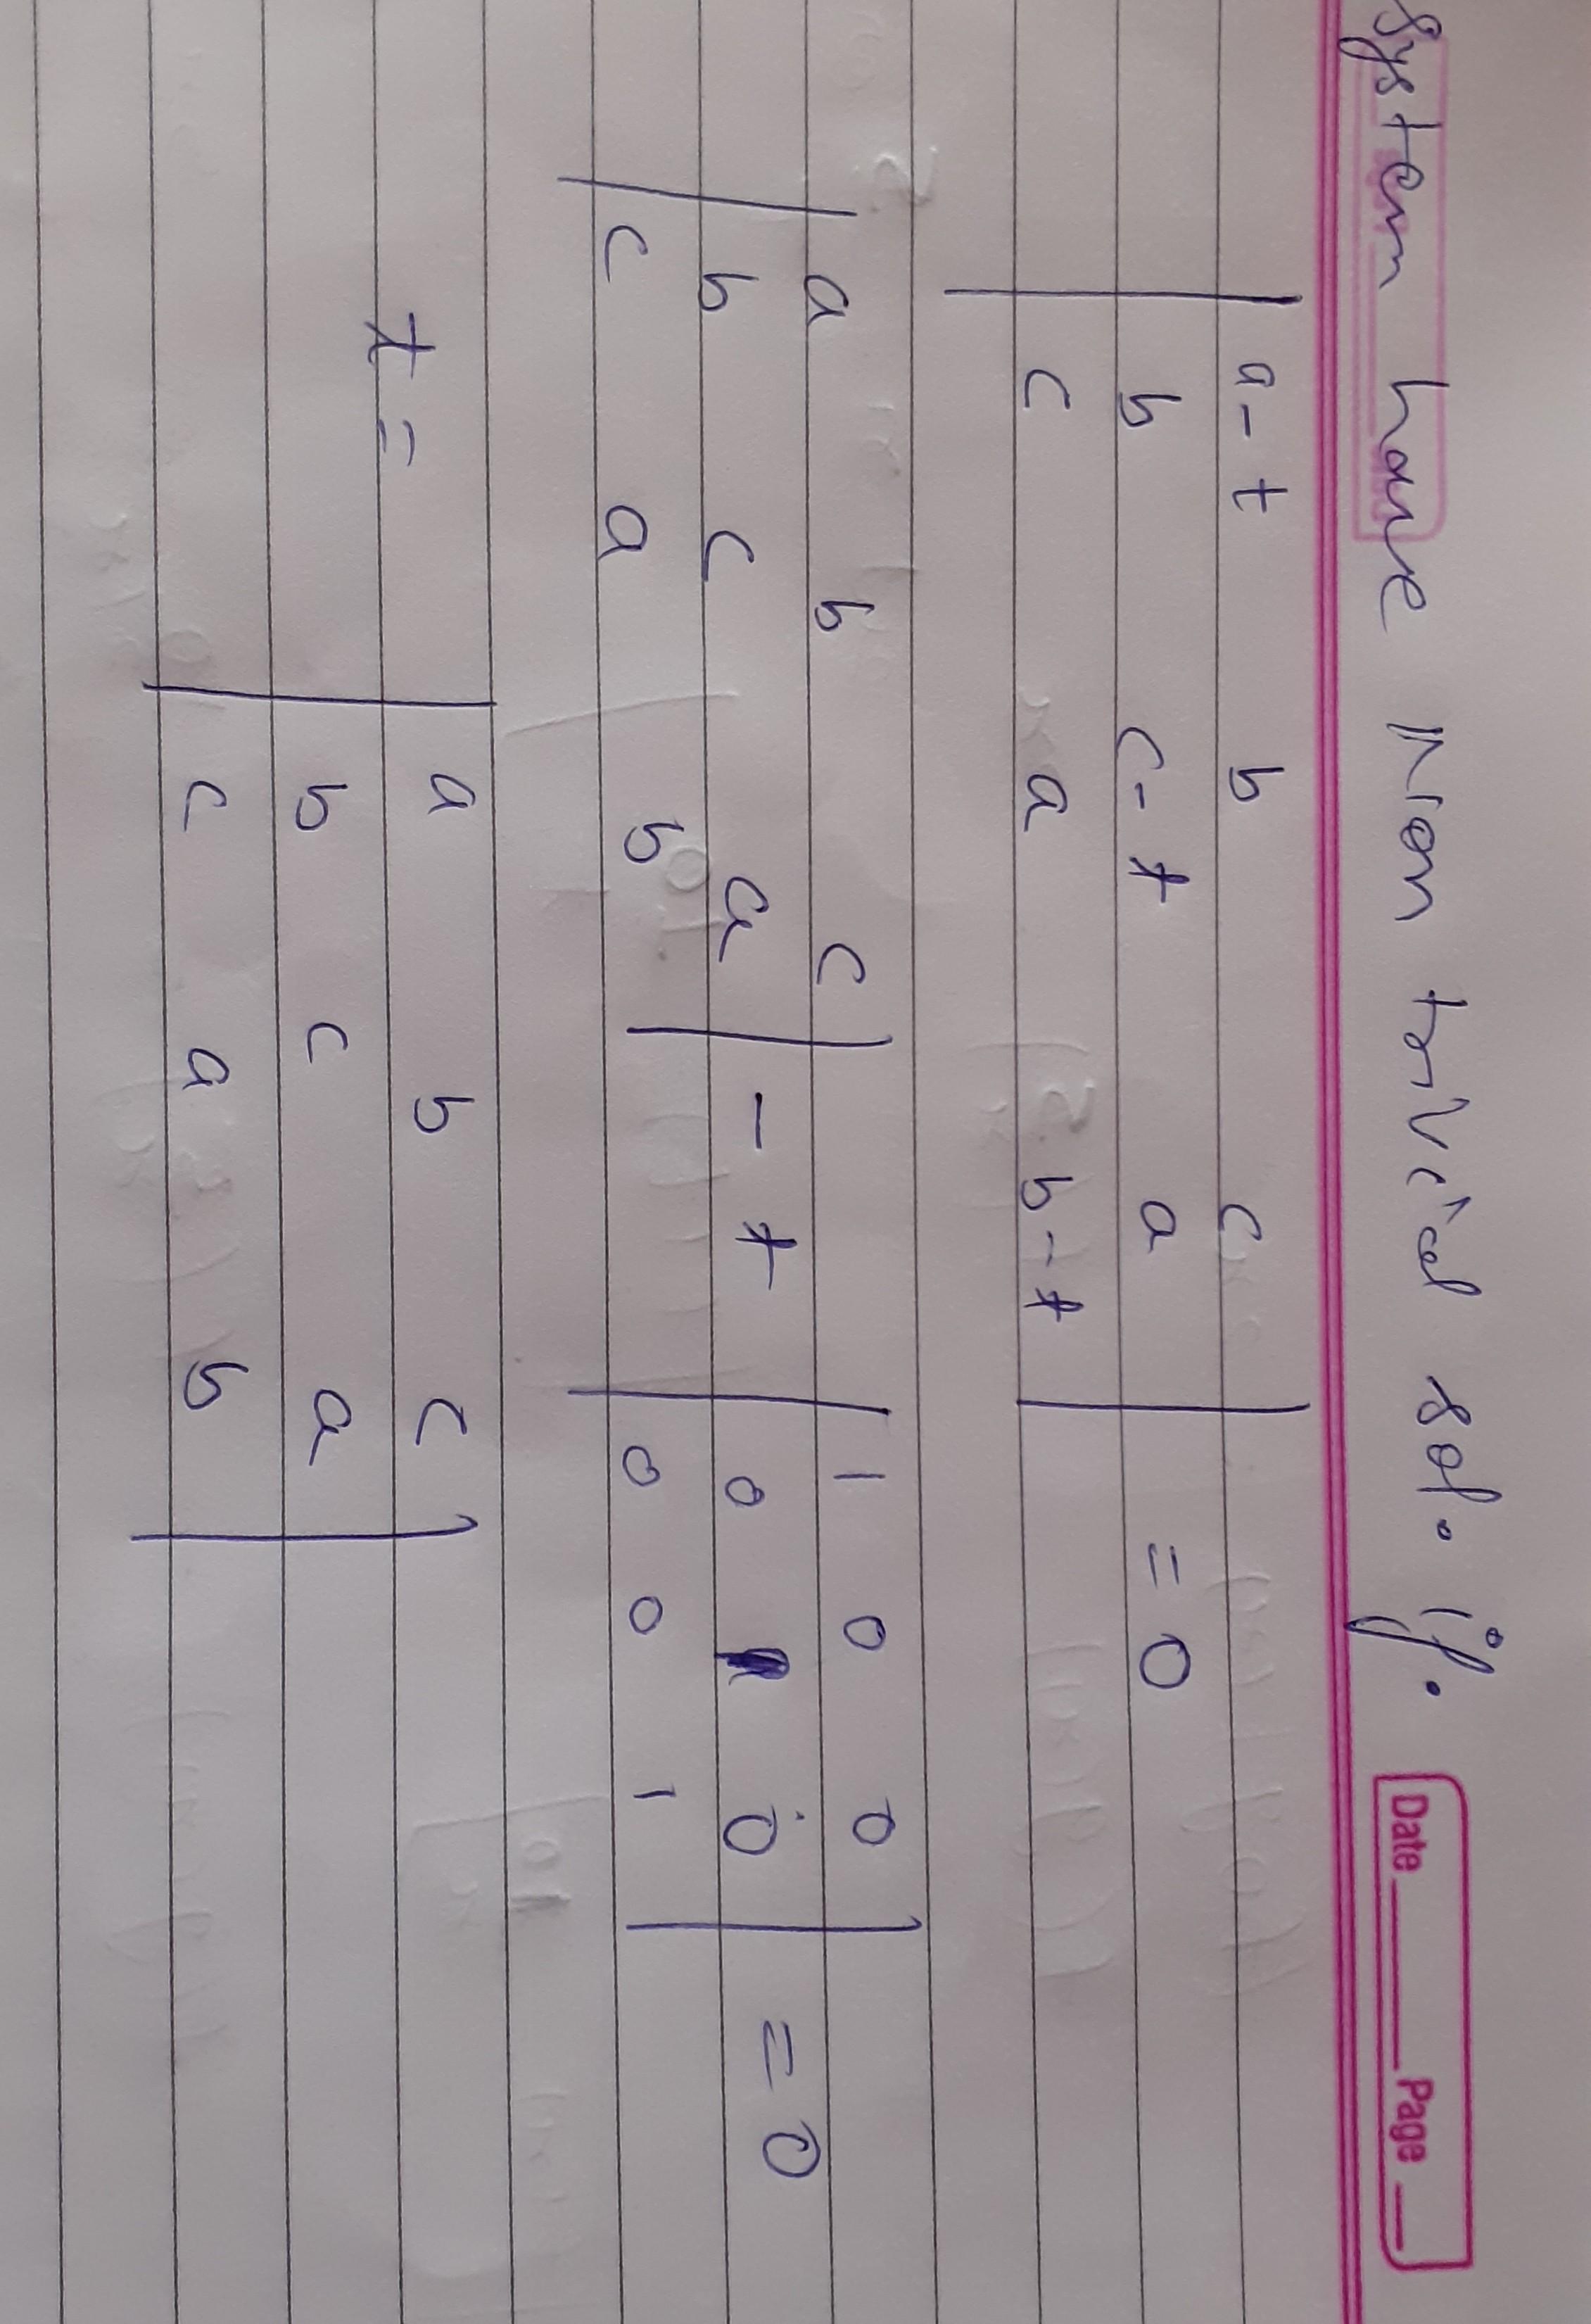 System have Non trivial sol. if.
Date Page
| a-t b c |
| b c-t a | = 0
| c a b-t |
| a b c | | 1 0 0 |
| b c a | - t | 0 1 0 | = 0
| c a b | | 0 0 1 |
t = | a b c |
| b c a |
| c a b |